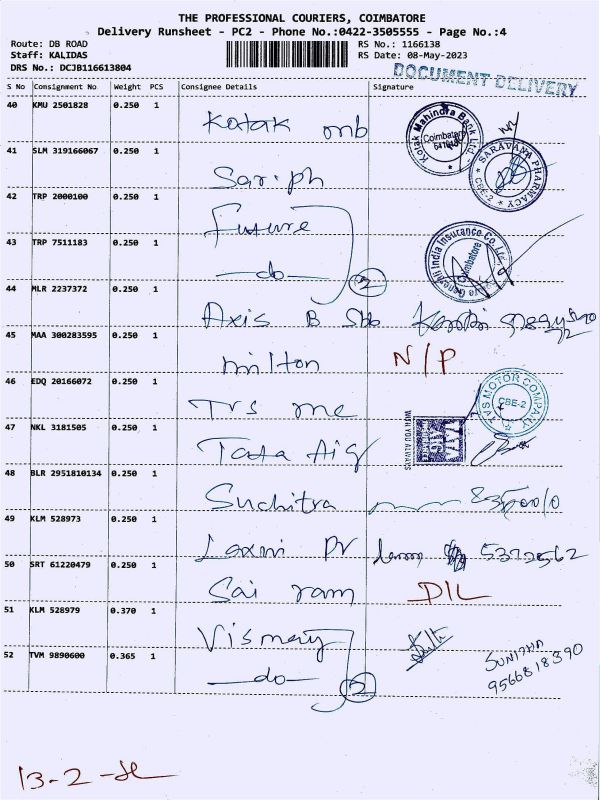 THE PROFESSIONAL COURIERS, COIMBATORE
Delivery Runsheet - PC2 - Phone No.:0422-3505555 - Page No.:4
Route: DB ROAD
Staff: KALIDAS
DRS No.: DCJB116613804
RS No.: 1166138
RS Date: 08-May-2023
DOCUMENT DELIVERY
S No Consignment No. Weight PCS Consignee Details Signature
40 KMU 2501828 0.250 1 Kotak mb
Kotak Mahindra Bank Ltd
Coimbatore
41 SLM 319166067 0.250 1 Sar.ph
SARAVANA PHARMACY
CBE-2
42 TRP 2000100 0.250 1 Future
43 TRP 7511183 0.250 1 -do- 2
Generali India Insurance Co. Ltd
Coimbatore
44 MLR 2237372 0.250 1 Axis B
45 MAA 300283595 0.250 1 milton N/P
46 EDQ 20166072 0.250 1 Tvs mc
TVS MOTOR COMPANY
CBE-2
47 NKL 3181505 0.250 1 Tata Aig
TATA AIG
WITH YOU ALWAYS
48 BLR 2951810134 0.250 1 Suchitra
49 KLM 528973 0.250 1 Laxmi Pr
50 SRT 61220479 0.250 1 Sai ram D/L
51 KLM 528979 0.370 1 Vismay
52 TVM 9890600 0.365 1 -do- 2
SUNITHA
9566818390
13-2-